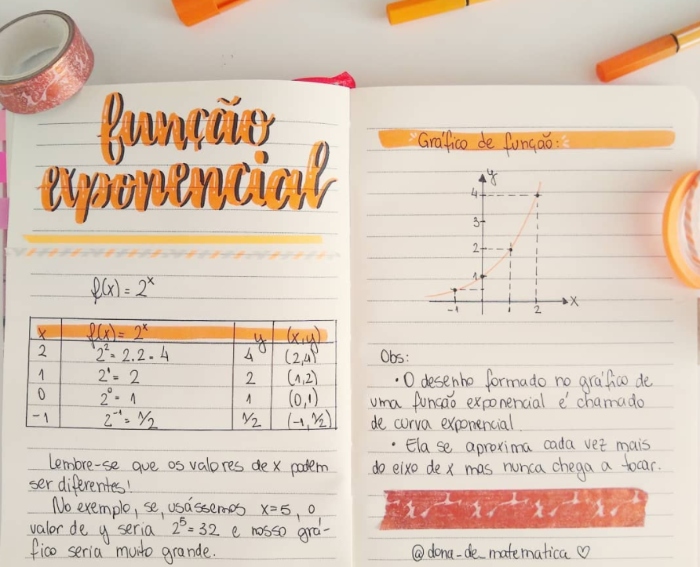 função
exponencial
f(x) = 2ˣ
x f(x) = 2ˣ y (x,y)
2 2² = 2.2 = 4 4 (2,4)
1 2¹ = 2 2 (1,2)
0 2⁰ = 1 1 (0,1)
-1 2⁻¹ = 1/2 1/2 (-1, 1/2)
Lembre-se que os valores de x podem
ser diferentes!
No exemplo, se, usássemos x=5, o
valor de y seria 2⁵ = 32 e nosso grá-
fico seria muito grande.
Gráfico de função:
y
4
3
2
1
-1 1 2 x
Obs:
• O desenho formado no gráfico de
uma função exponencial é chamado
de curva exponencial.
• Ela se aproxima cada vez mais
do eixo de x mas nunca chega a tocar.
@dona_de_matematica ♡